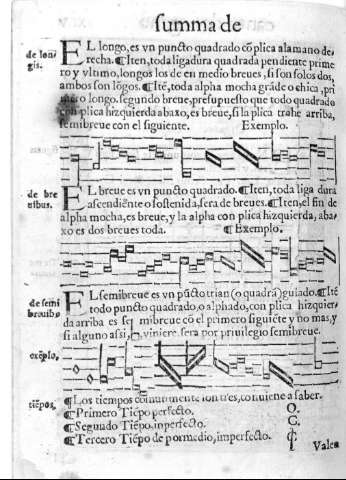 summa de
de longis.
EL longo, es vn puncto quadrado cō plica alamano derecha. ¶Itē, toda ligadura quadrada pendiente primero y vltimo, longos los de en medio breues, si son solos dos, ambos son lōgos. ¶Itē, toda alpha mocha grāde o chica, primero longo. segundo breue, presupuesto que todo quadrado con plica hizquierda abaxo, es breue, si la plica trahe arriba, semibreue con el siguiente. Exemplo.
de breuibus.
EL breue es vn puncto quadrado. ¶Itē, toda liga dura
ascendiēte o sostenida, sera de breues. ¶Itē, el fin de
alpha mocha, es breue, y la alpha con plica hizquierda, abaxo es dos breues toda. ¶ Exemplo.
de semibrouib9
EL semibreue es vn pūcto trian (o quadrā) gulado. ¶Itē
todo puncto quadrado, o alphado, con plica hizquierda arriba es semibreue cō el primero siguiēte y no mas, y
si alguno assi, viniere sera por priuilegio semibreue.
exēplo,
tiēpos,
¶Los tiempos comunmente son tres, conuiene a saber.
¶Primero Tiēpo perfecto. O.
¶Segundo Tiēpo, inperfecto. C.
¶Tercero Tiēpo de por medio, imperfecto. ₵
Vale